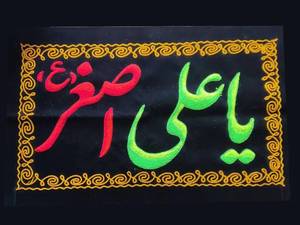 یا علی اصغر (ع)